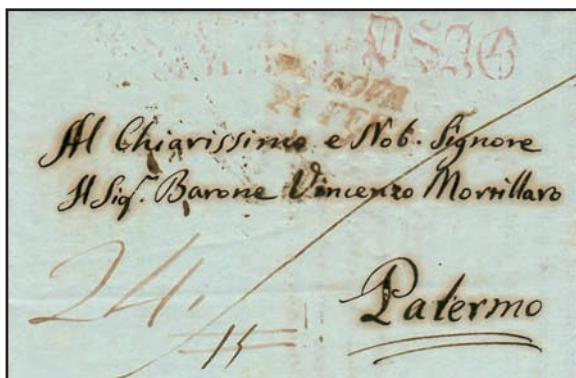 DSAG
Al Chiarissimo e Nob. Signore
Il Sigr. Barone Vincenzo Mortillaro
24
15
Palermo